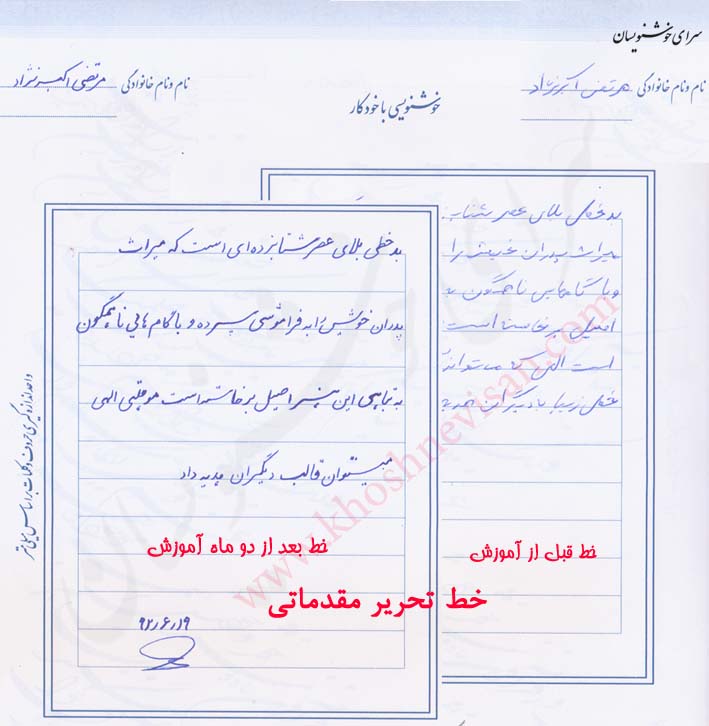 سرای خوشنویسان
نام و نام خانوادگی مرتضی اکبرنژاد
نام و نام خانوادگی مرتضی اکبرنژاد
خوشنویسی با خودکار
بدخطی بلای عصر شتاب
میراث پدران خویش را
و با گامهایی ناهمگون به
اصیل برخاسته است
است الهی که میتوان
خطی زیبا با دیگران
خط قبل از آموزش
بدخطی بلای عصر شتابزده‌ای است که میراث
پدران خویش را به فراموشی سپرده و با گام هائی ناهمگون
به تباهی این هنر اصیل برخاسته است موهبتی الهی
میتوان قالب دیگران هدیه داد
خط بعد از دو ماه آموزش
خط تحریر مقدماتی
۹۲٫۶٫۱۹
واحد اندازه گیری حروف و کلمات بر اساس میلی متر
www.khoshnevisan.com